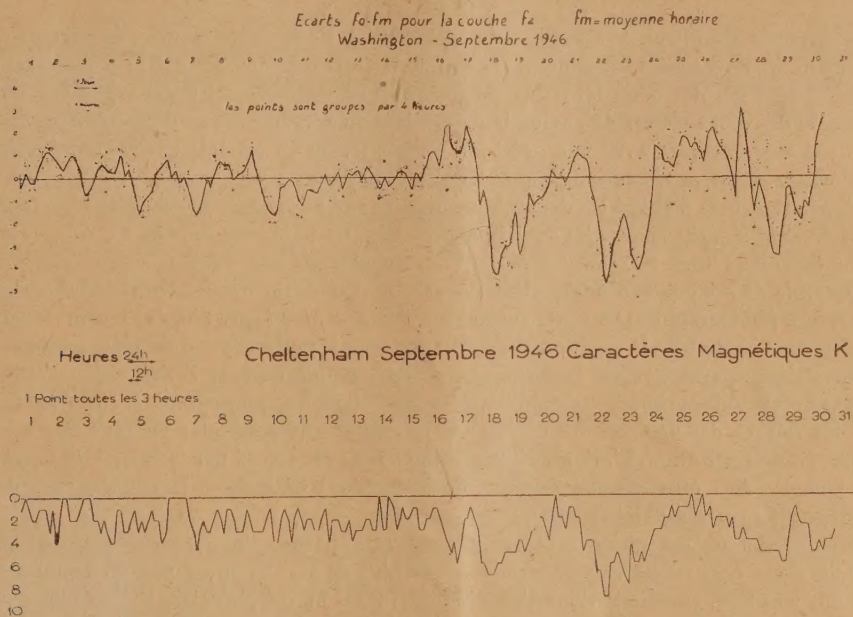 Ecarts fo-fm pour la couche F2 fm = moyenne horaire
Washington - Septembre 1946
1 2 3 4 5 6 7 8 9 10 11 12 13 14 15 16 17 18 19 20 21 22 23 24 25 26 27 28 29 30 31
1 Jour
les points sont groupés par 4 heures
3
2
1
0
-1
-2
-3
-4
-5
Heures 24h
12h
Cheltenham Septembre 1946 Caractères Magnétiques K
1 Point toutes les 3 heures
1 2 3 4 5 6 7 8 9 10 11 12 13 14 15 16 17 18 19 20 21 22 23 24 25 26 27 28 29 30 31
0
2
4
6
8
10